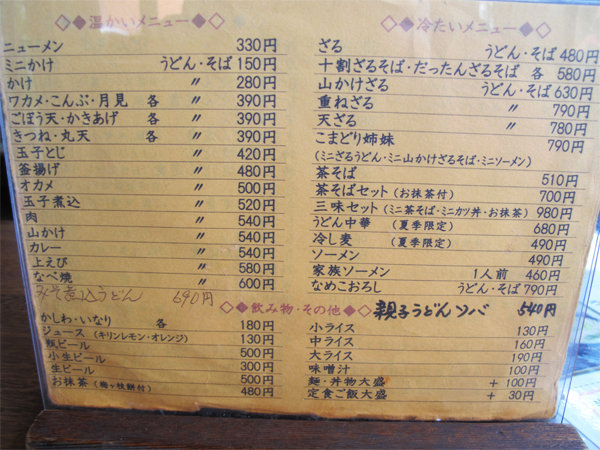 ◇◆温かいメニュー◆◇
ニューメン 330円
ミニかけ うどん・そば 150円
かけ 〃 280円
ワカメ・こんぶ・月見 各 〃 390円
ごぼう天・かきあげ 各 〃 390円
きつね・丸天 各 〃 390円
玉子とじ 〃 420円
釜揚げ 〃 480円
オカメ 〃 500円
玉子煮込 〃 520円
肉 〃 540円
山かけ 〃 540円
カレー 〃 540円
上えび 〃 580円
なべ焼 〃 600円
みそ煮込うどん 690円
◇◆冷たいメニュー◆◇
ざる うどん・そば 480円
十割ざるそば・だったんざるそば 各 580円
山かけざる うどん・そば 630円
重ねざる 〃 790円
天ざる 〃 780円
こまどり姉妹 790円
(ミニざるうどん・ミニ山かけざるそば・ミニソーメン)
茶そば 510円
茶そばセット(お抹茶付) 700円
三味セット(ミニ茶そば・ミニカツ丼・お抹茶) 980円
うどん中華 (夏季限定) 680円
冷し麦 (夏季限定) 490円
ソーメン 490円
家族ソーメン 1人前 460円
なめこおろし うどん・そば 790円
親子うどんソバ 540円
◇◆飲み物・その他◆◇
かしわ・いなり 各 180円
ジュース(キリンレモン・オレンジ) 130円
瓶ビール 500円
小生ビール 300円
生ビール 500円
お抹茶(梅ヶ枝餅付) 480円
小ライス 130円
中ライス 160円
大ライス 190円
味噌汁 100円
麺・丼物大盛 +100円
定食ご飯大盛 +30円